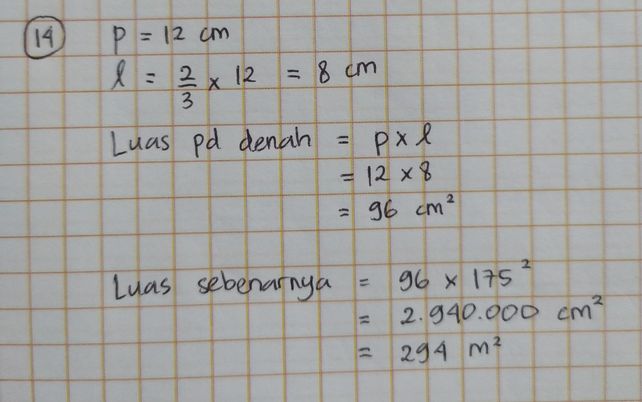 14 p = 12 cm
l = 2/3 x 12 = 8 cm
Luas pd denah = p x l
= 12 x 8
= 96 cm²
Luas sebenarnya = 96 x 175²
= 2.940.000 cm²
= 294 m²